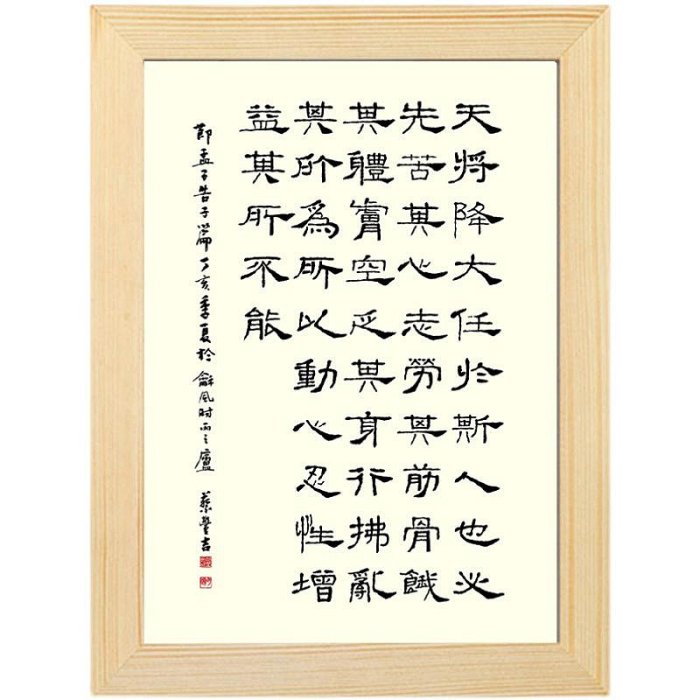 天將降大任於斯人也必
先苦其心志勞其筋骨餓
其體膚空乏其身行拂亂
其所爲所以動心忍性增
益其所不能
節孟子告子篇丁亥季夏於龢風时雨之廬 蔡豐吉